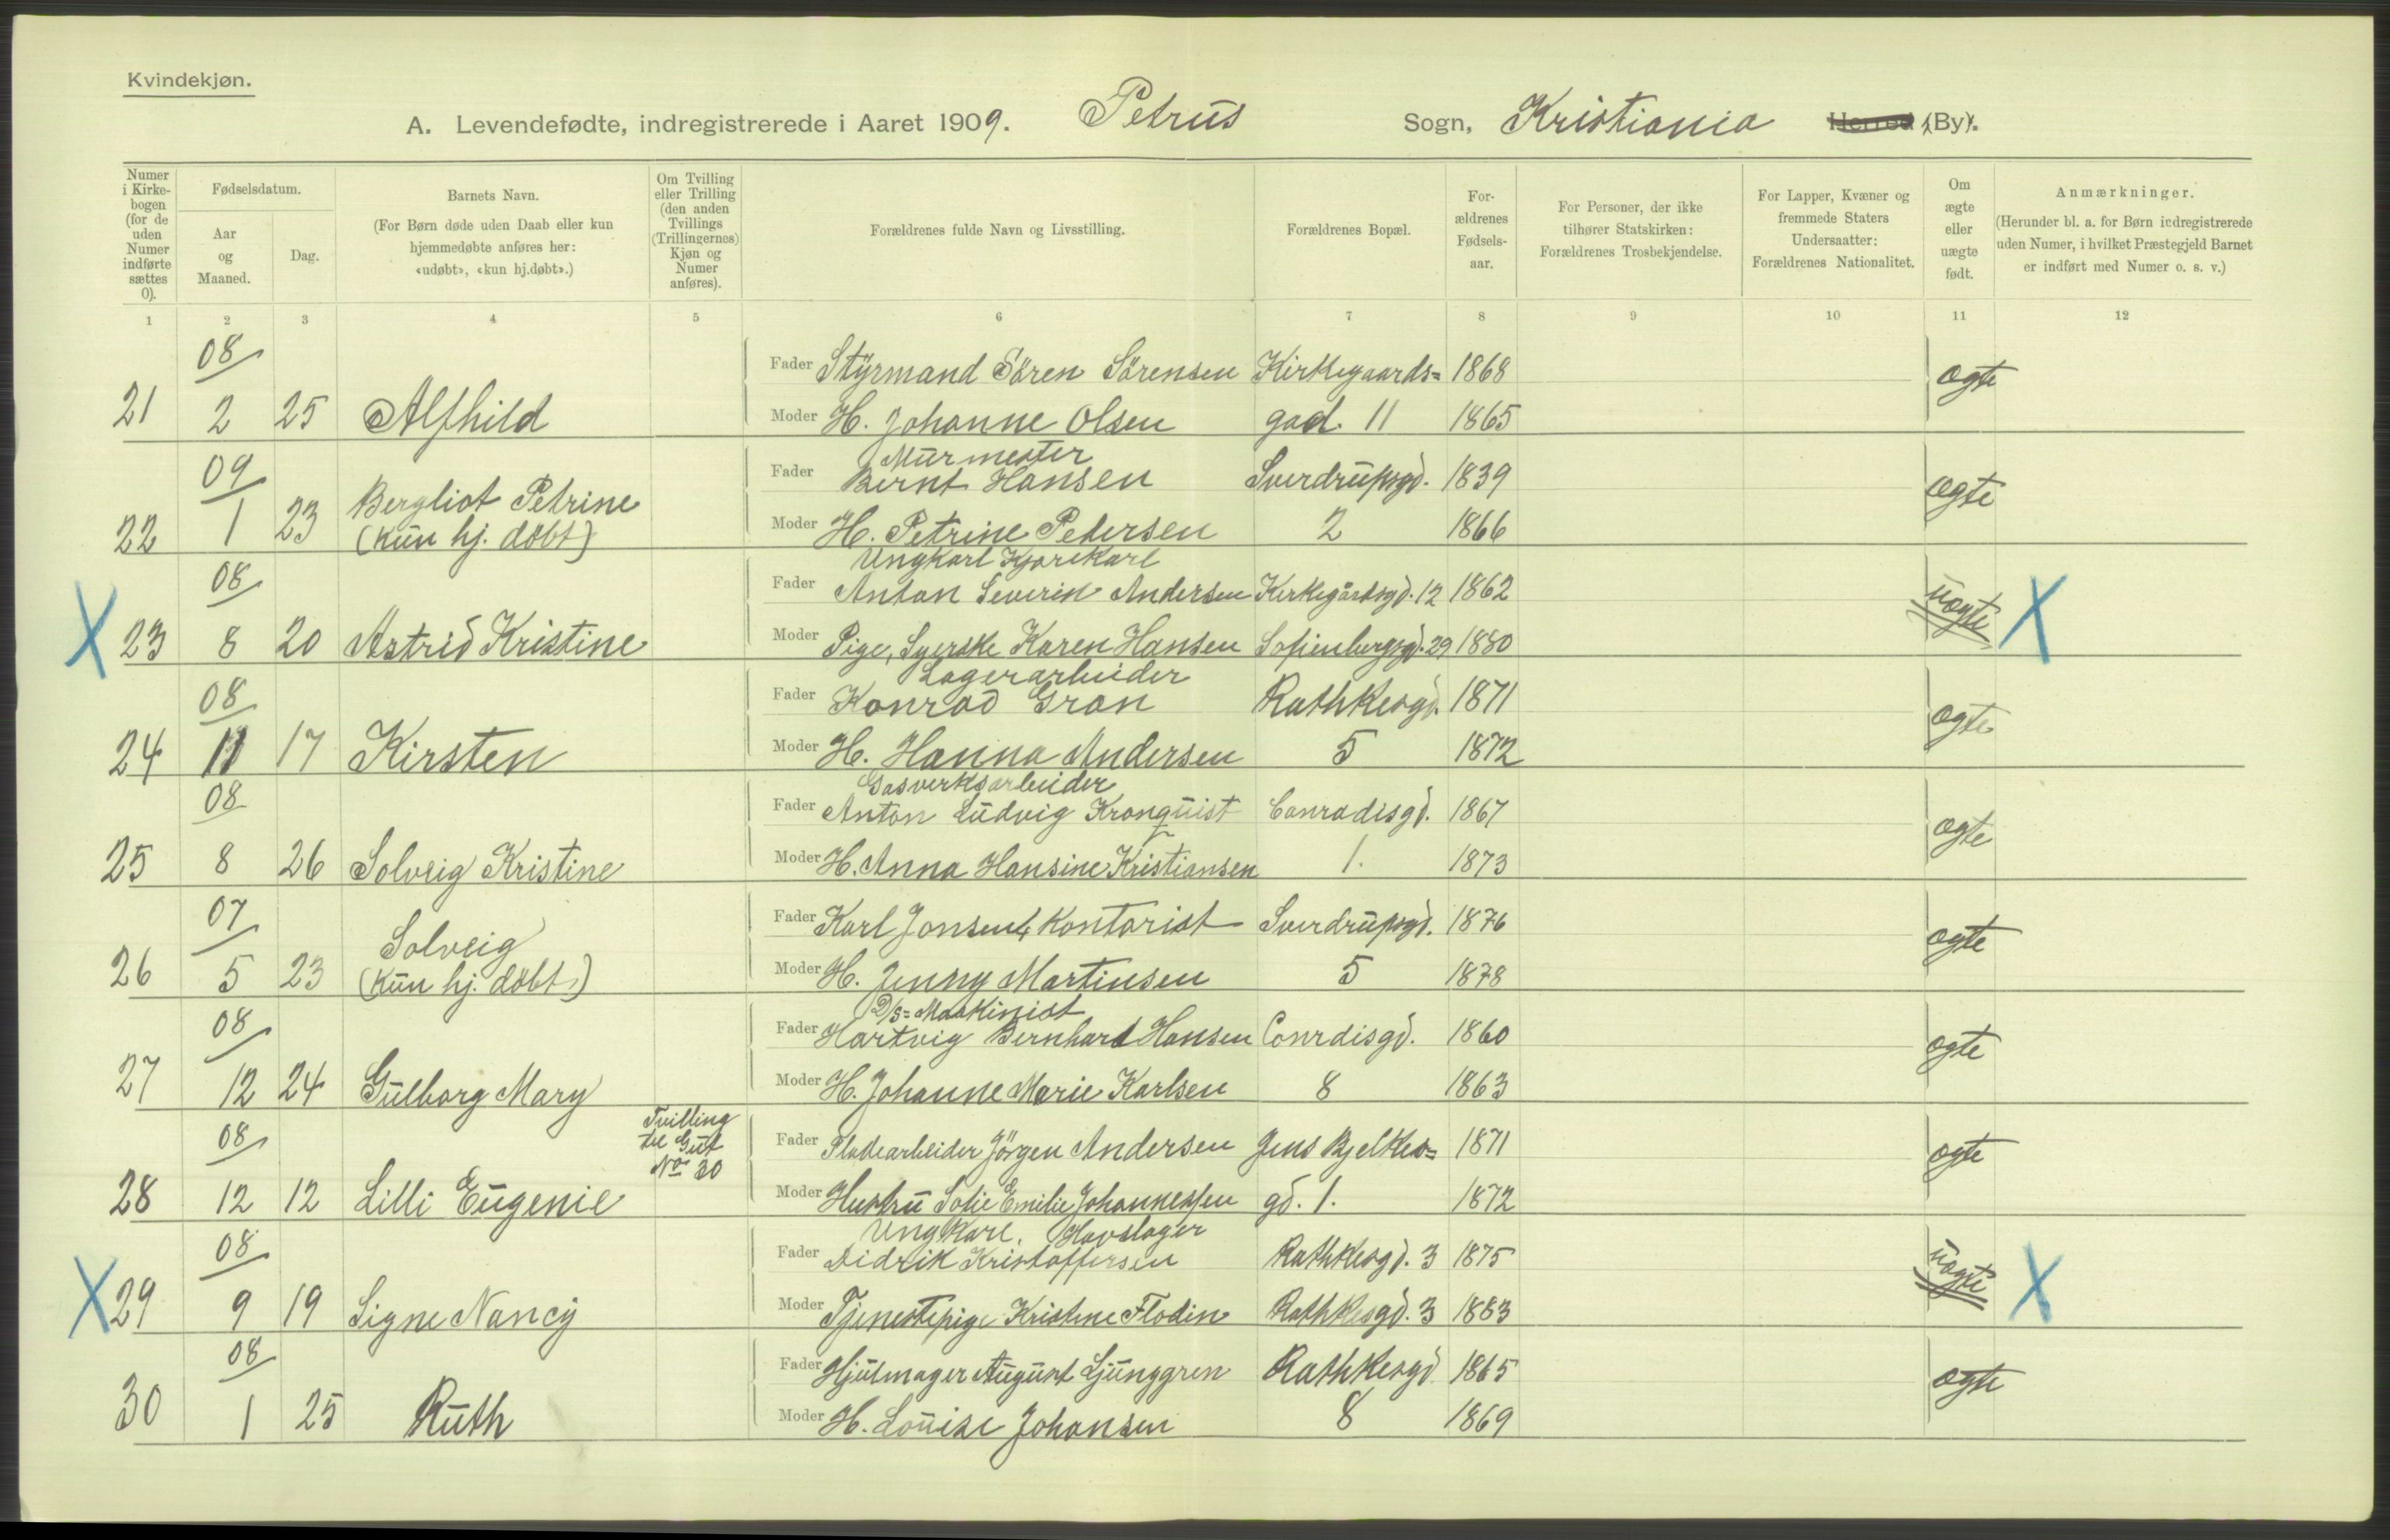 Kvindekjøn.
A. Levendefødte, indregistrerede i Aaret 1909. Petrus Sogn, Kristiania Herred (By).
Numer i Kirkebogen (for de uden Numer indførte sættes 0).
Fødselsdatum.
Aar og Maaned.
Dag.
Barnets Navn.
(For Børn døde uden Daab eller kun hjemmedøbte anføres her: «udøbt», «kun hj.døbt».)
Om Tvilling eller Trilling (den anden Tvillings (Trillingernes) Kjøn og Numer anføres).
Forældrenes fulde Navn og Livsstilling.
Forældrenes Bopæl.
For-ældrenes Fødsels-aar.
For Personer, der ikke tilhører Statskirken: Forældrenes Trosbekjendelse.
For Lapper, Kvæner og fremmede Staters Undersaatter: Forældrenes Nationalitet.
Om ægte eller uægte født.
Anmærkninger.
(Herunder bl. a. for Børn indregistrerede uden Numer, i hvilket Præstegjeld Barnet er indført med Numer o. s. v.)
1 2 3 4 5 6 7 8 9 10 11 12
08
Fader Styrmand Sören Sörensen Kirkegaards= 1868 ægte
21 2 25 Alfhild Moder H. Johanne Olsen gad. 11 1865
09 Murmester
Fader Bernt Hansen Sverdrupsgd. 1839 ægte
Bergliot Petrine
22 1 23 (Kun hj. döbt) Moder H. Petrine Pedersen 2 1866
08 Ungkarl Kjørekarl
Fader Anton Severin Andersen Kirkegårdsgd. 12 1862 uægte X
X 23 8 20 Astrid Kristine Moder Pige, Syerske Karen Hansen Sofienbergsgd. 29 1880
08 Lagerarbeider
Fader Konrad Gran Rathkesgd. 1871 ægte
24 11 17 Kirsten Moder H. Hanna Andersen 5 1872
08 Gasverksarbeider
Fader Anton Ludvig Kronquist Conradisgd. 1867 ægte
25 8 26 Solveig Kristine Moder H. Anna Hansine Kristiansen 1. 1873
07
Fader Karl Jonsen, Kontorist Sverdrupsgd. 1876 ægte
Solveig
26 5 23 (Kun hj. döbt) Moder H. Jenny Martinsen 5 1878
08 D/s=Maskinist
Fader Hartvig Bernhard Hansen Conrdisgd. 1860 ægte
27 12 24 Gulborg Mary Moder H. Johanne Marie Karlsen 8 1863
Tvilling
til Gut
No 30
08
Fader Pladearbeider Jörgen Andersen Jens Bjelkes= 1871 ægte
28 12 12 Lilli Eugenie Moder Hustru Sofie Emilie Johannessen gd. 1. 1872
08 Ungkarl, Hovslager
Fader Didrik Kristoffersen Rathkesgd. 3 1875 uægte X
X 29 9 19 Signe Nancy Moder Tjenestepige Kristine Flodin Rathkesgd. 3 1883
08
Fader Hjulmager August Ljunggren Rathkesgd 1865 ægte
30 1 25 Ruth Moder H. Louise Johansen 8 1869